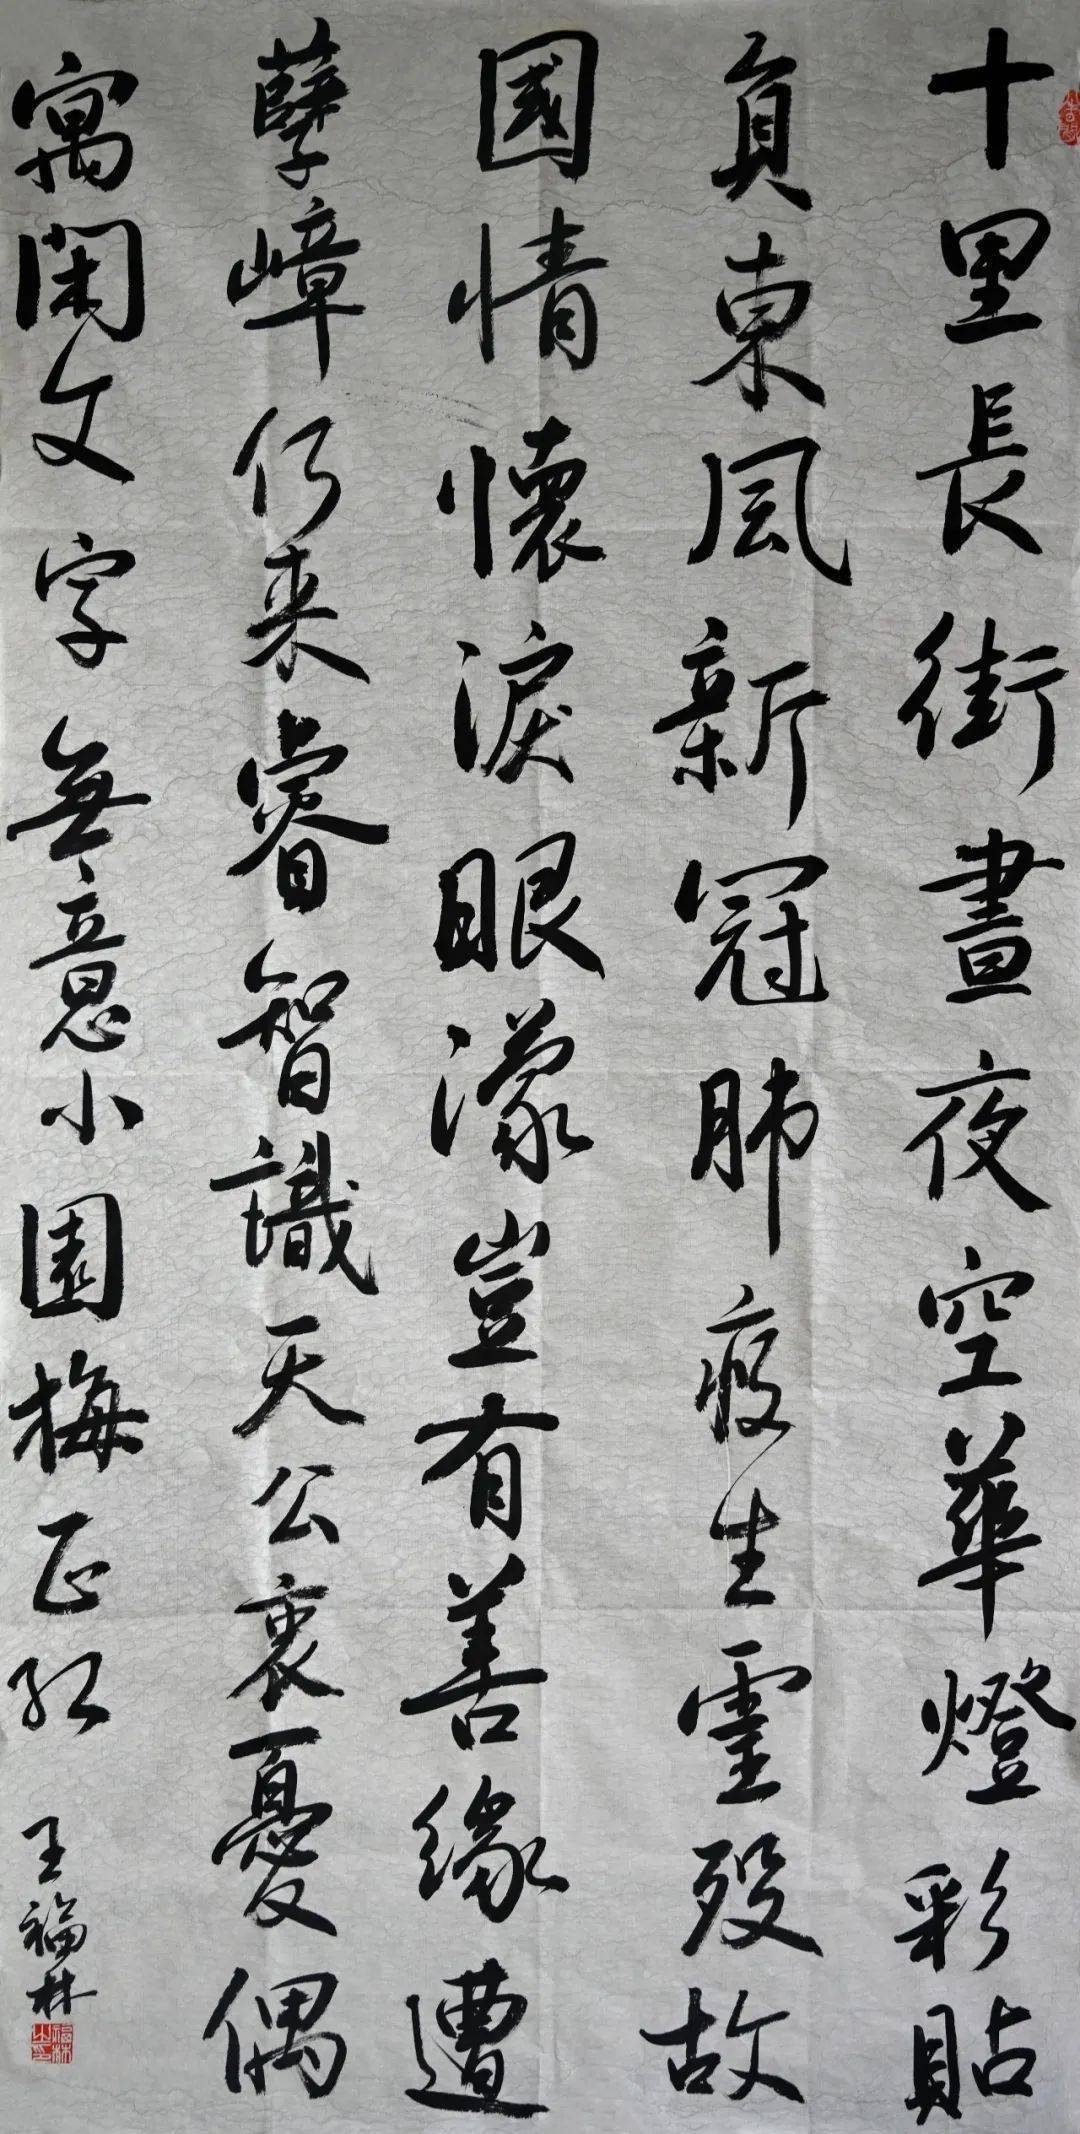 十里長街晝夜空華燈彩貼
負東風新冠肺疫生靈歿故
國情懷淚眼濛豈有善緣遭
孽嶂仍来睿智識天公衷憂偶
寓閑文字無意小園梅正红
王福林